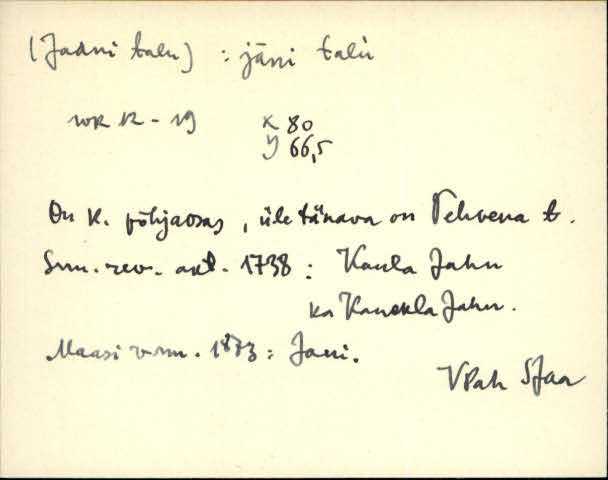 (Jaani talu) : jäni talù
WR 12 - 19 x 80
y 66,5
On K. põhjaosas, üle tänava on Vehvena t.
Srm. rev. akt. 1738 : Kaula Jahn
ka Jahn.
Maasi vrm. 1873 : Jani.